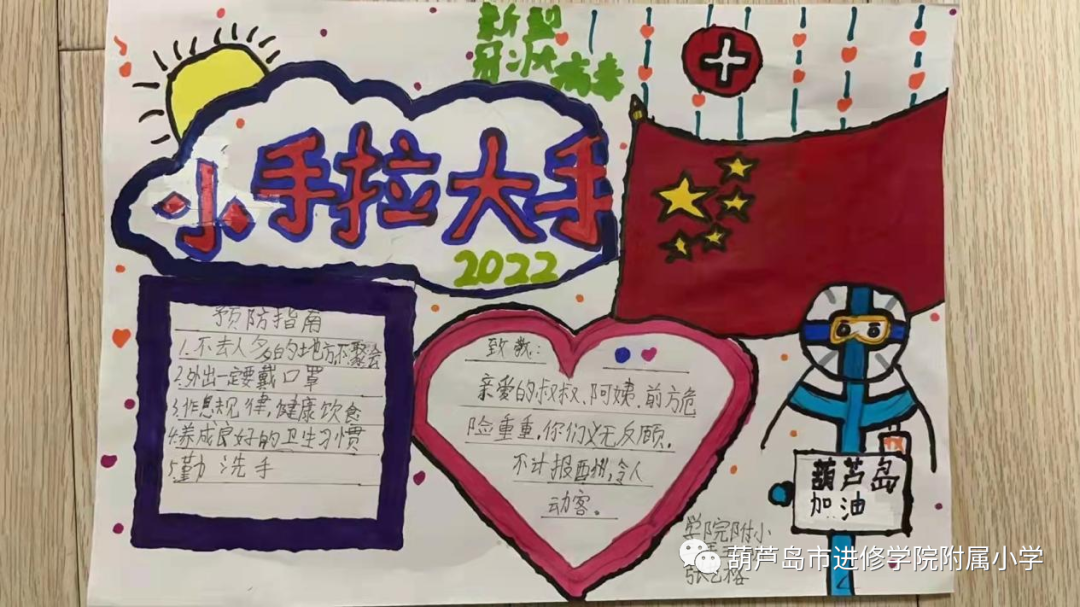 新型
冠状病毒
小手拉大手
2022
预防指南
1.不去人多的地方不聚会
2.外出一定要戴口罩
3.作息规律,健康饮食
4.养成良好的卫生习惯
5.勤洗手
致敬:
亲爱的叔叔、阿姨,前方危
险重重,你们义无反顾,
不计报酬,令人
动客。
葫芦岛
加油
学院附小
葫芦岛市进修学院附属小学